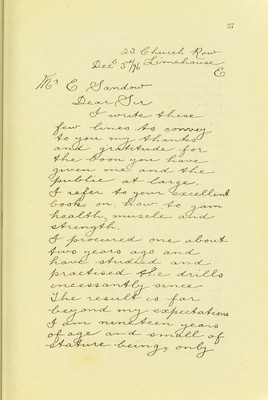 37
23 Church Row
Limehouse
Dec 5th/96 E
Mr E. Sandow
Dear Sir
I write these
few lines to convey
to you my thanks
and gratitude for
the boon you have
given me and the
public at large.
I refer to your excellent
book on, how to gain
health, muscle and
strength.
I procured one about
two years ago and
have studied and
practised the drills
incessantly since
The result is far
beyond my expectations
I am nineteen years
of age and small of
stature being, only